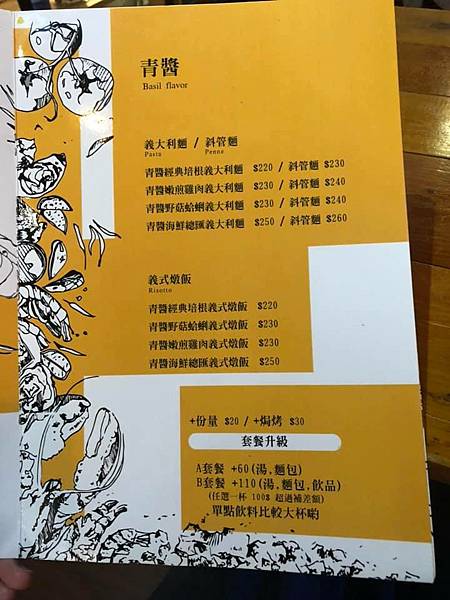 青醬
Basil flavor
義大利麵 / 斜管麵
Pasta Penne
青醬經典培根義大利麵 $220 / 斜管麵 $230
青醬嫩煎雞肉義大利麵 $230 / 斜管麵 $240
青醬野菇蛤蜊義大利麵 $230 / 斜管麵 $240
青醬海鮮總匯義大利麵 $250 / 斜管麵 $260
義式燉飯
Risotto
青醬經典培根義式燉飯 $220
青醬野菇蛤蜊義式燉飯 $230
青醬嫩煎雞肉義式燉飯 $230
青醬海鮮總匯義式燉飯 $250
+份量 $20 / +焗烤 $30
套餐升級
A套餐 +60(湯,麵包)
B套餐 +110(湯,麵包,飲品)
(任選一杯 100$ 超過補差額)
單點飲料比較大杯喲
7